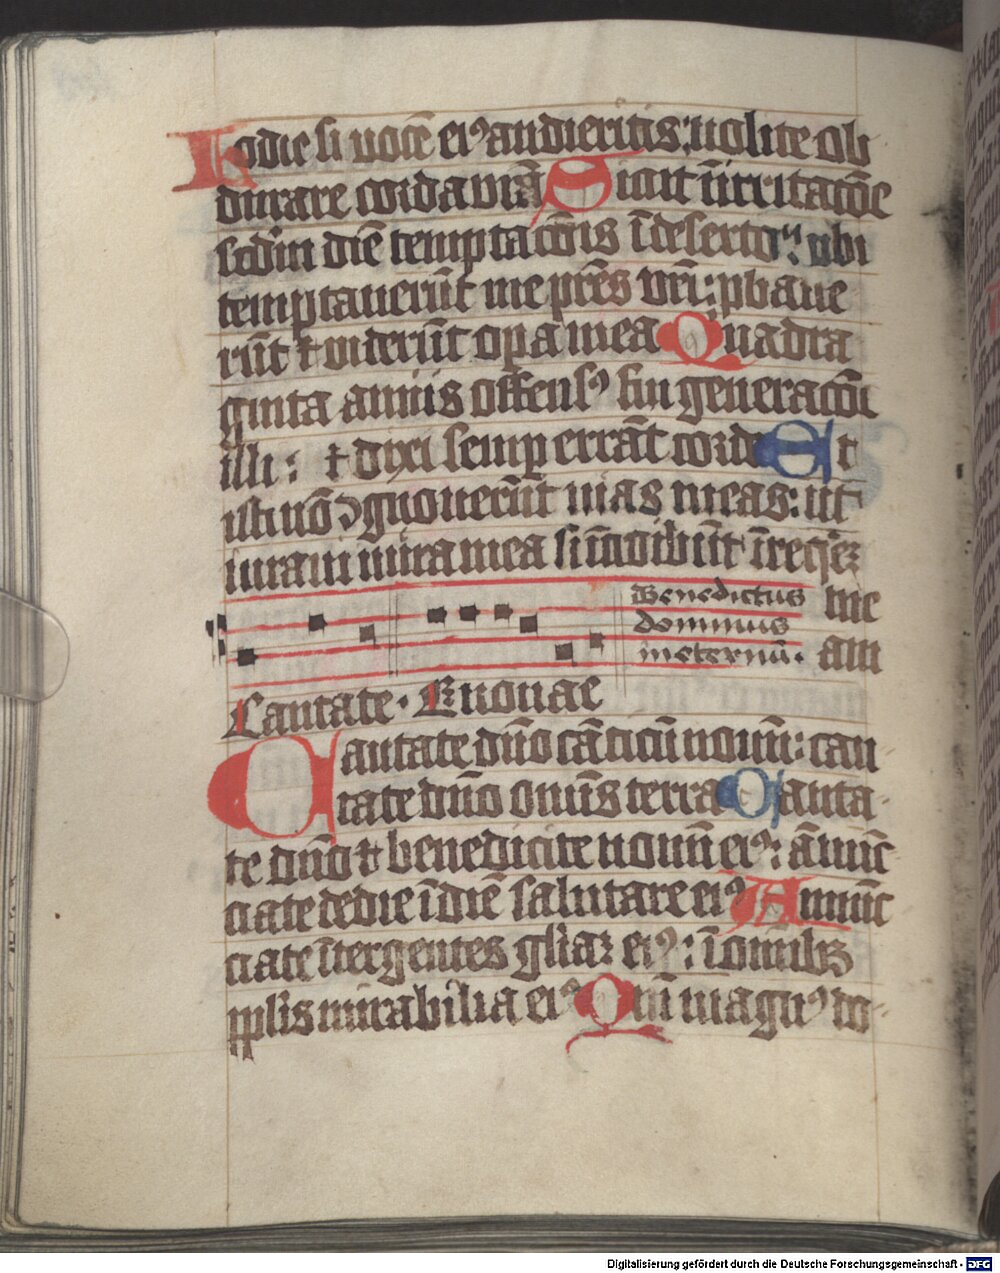 Hodie si vocē eiꝰ audieritis: nolite ob
durare corda vr̄a Sicut ī irritacōe
scdm̄ diē temptacōnis ī deserto: ubi
temptaverūt me pr̄es vr̄i: ꝓbave
rūt ⁊ viderūt oꝑa mea Quadra
ginta annis offensꝰ fui generacōi
illi: ⁊ dixi semꝑ errāt corde Et
isti nō ꝯgnoverūt vias meas: ut
iuravi in ira mea si īnoibūt ī requiē
Benedictus me
dominus
in eternū. am
Cantate. Euouae
Cantate dn̄o cāticū novū: can
tate dn̄o om̄is terra Canta
te dn̄o ⁊ benedicite nomī eiꝰ: ānūc
ciate de die ī diē salutare eiꝰ Annūc
ciate īter gentes gl̄iaꝫ eiꝰ: ī omibꝫ
ppl̄is mirabilia eiꝰ Qm̄ magnꝰ do
Digitalisierung gefördert durch die Deutsche Forschungsgemeinschaft - DFG